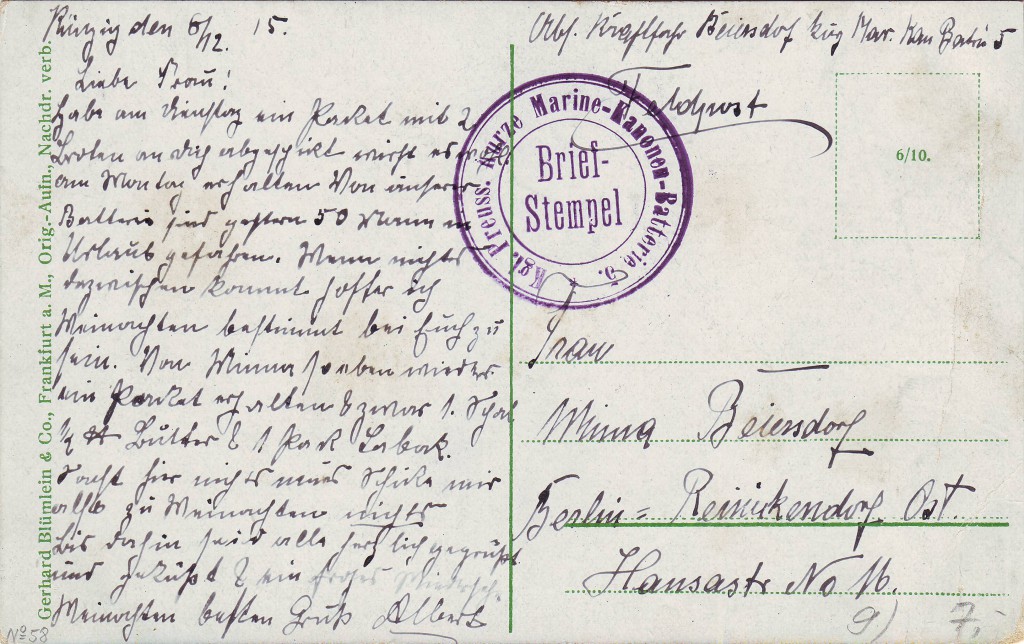 den 6/12. 15.
Liebe Frau!
Habe am Dienstag ein Packet mit 2
Broten an dich abgeschickt wirst es
am Montag erhalten Von unserer
Batterie sind gestern 50 Mann in
Urlaub gefahren. Wenn nichts
dazwischen kommt hoffe ich
Weinachten bestimmt bei Euch zu
sein. Von Minna soeben wieder
ein Packet erhalten & zwar 1. Schal
1/2 ℔ Butter & 1 Pack Tabak.
Sonst hier nichts neues Schicke mir
also zu Weinachten nichts
Bis dahin seid alle herzlich gegrüßt
und geküßt & ein frohes
Weinachten besten Gruß Albert
Gerhard Blümlein & Co., Frankfurt a. M., Orig.-Aufn., Nachdr. verb.
No 58
Abs. Kraftfahr Beiersdorf Mar. Kan Battr 5
Feldpost
Kgl. Preuss. Kurze Marine-Kanonen-Batterie 5.
Brief-
Stempel
6/10.
Frau
Minna Beiersdorf
Berlin = Reinickendorf Ost.
Hansastr No 16.
9) 7,-